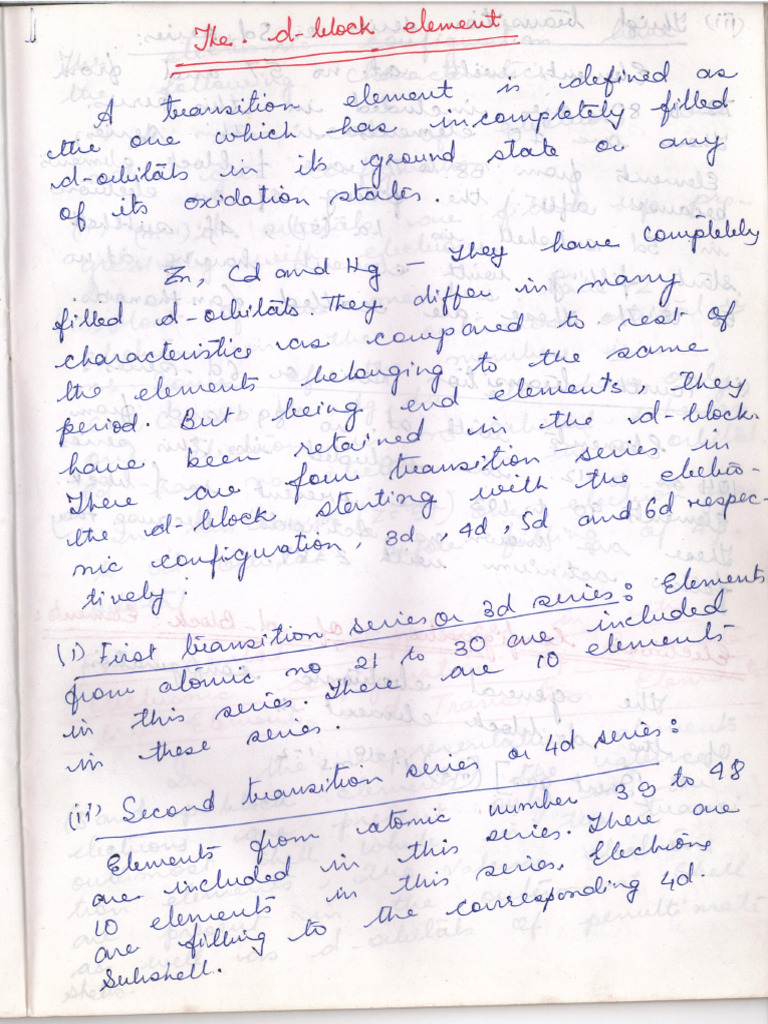 The d-block element
A transition element is defined as
the one which has incompletely filled
d-orbitals in its ground state or any
of its oxidation states.
Zn, Cd and Hg - They have completely
filled d-orbitals. They differ in many
characteristics as compared to rest of
the elements belonging to the same
period. But being end elements, They
have been retained in the d-block.
There are four transition series in
the d-block starting with the electro-
nic configuration, 3d, 4d, 5d and 6d respec-
tively:
(i) First transition series or 3d series: Elements
from atomic no 21 to 30 are included
in this series. There are 10 elements
in these series.
(ii) Second transition series or 4d series:
Elements from atomic number 39 to 48
are included in this series. There are
10 elements in this series. Electrons
are filling to the corresponding 4d.
Subshell.